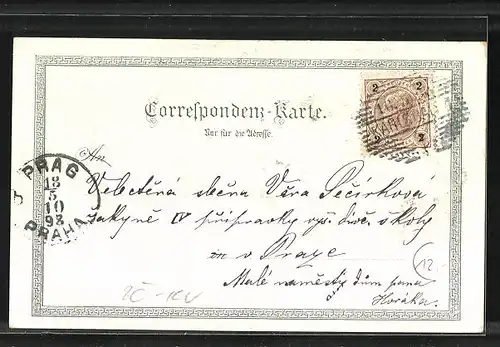 Correspondenz-Karte.
Nur für die Adresse.
An
Velectěná slečna Věra Pečírková
žákyně IV přípravky vyš. dívč. školy
in v Praze
Malé náměstí, dům pana
Horáka.
12.
PRAG
13
5
10
98
PRAHA
2
2
2